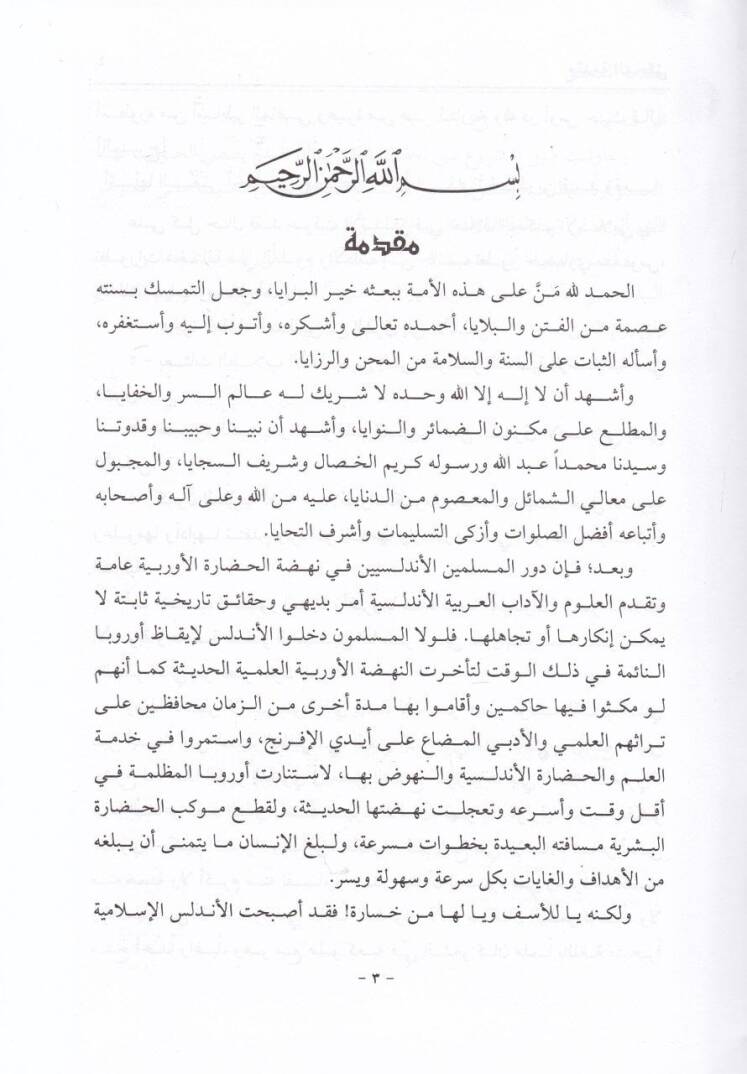 بسم الله الرحمن الرحيم
مقدمة
الحمد لله مَنَّ على هذه الأمة ببعثه خير البرايا، وجعل التمسك بسنته
عصمة من الفتن والبلايا، أحمده تعالى وأشكره، وأتوب إليه وأستغفره،
وأسأله الثبات على السنة والسلامة من المحن والرزايا.
وأشهد أن لا إله إلا الله وحده لا شريك له عالم السر والخفايا،
والمطلع على مكنون الضمائر والنوايا، وأشهد أن نبينا وحبيبنا وقدوتنا
وسيدنا محمداً عبد الله ورسوله كريم الخصال وشريف السجايا، والمجبول
على معالي الشمائل والمعصوم من الدنايا، عليه من الله وعلى آله وأصحابه
وأتباعه أفضل الصلوات وأزكى التسليمات وأشرف التحايا.
وبعد؛ فإن دور المسلمين الأندلسيين في نهضة الحضارة الأوربية عامة
وتقدم العلوم والآداب العربية الأندلسية أمر بديهي وحقائق تاريخية ثابتة لا
يمكن إنكارها أو تجاهلها. فلولا المسلمون دخلوا الأندلس لإيقاظ أوروبا
النائمة في ذلك الوقت لتأخرت النهضة الأوربية العلمية الحديثة كما أنهم
لو مكثوا فيها حاكمين وأقاموا بها مدة أخرى من الزمان محافظين على
تراثهم العلمي والأدبي المضاع على أيدي الإفرنج، واستمروا في خدمة
العلم والحضارة الأندلسية والنهوض بها، لاستنارت أوروبا المظلمة في
أقل وقت وأسرعه وتعجلت نهضتها الحديثة، ولقطع موكب الحضارة
البشرية مسافته البعيدة بخطوات مسرعة، ولبلغ الإنسان ما يتمنى أن يبلغه
من الأهداف والغايات بكل سرعة وسهولة ويسر.
ولكنه يا للأسف ويا لها من خسارة! فقد أصبحت الأندلس الإسلامية
- ٣ -